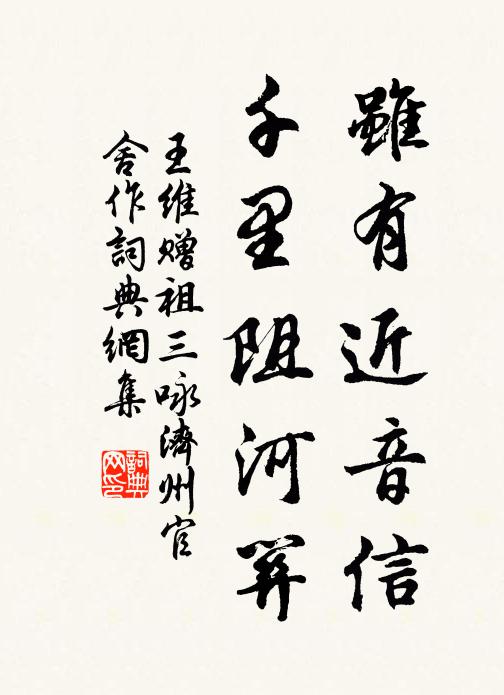 雖有近音信
千里阻河關
王維贈祖三咏濟州官
舍作詞典網集
詞典
网印